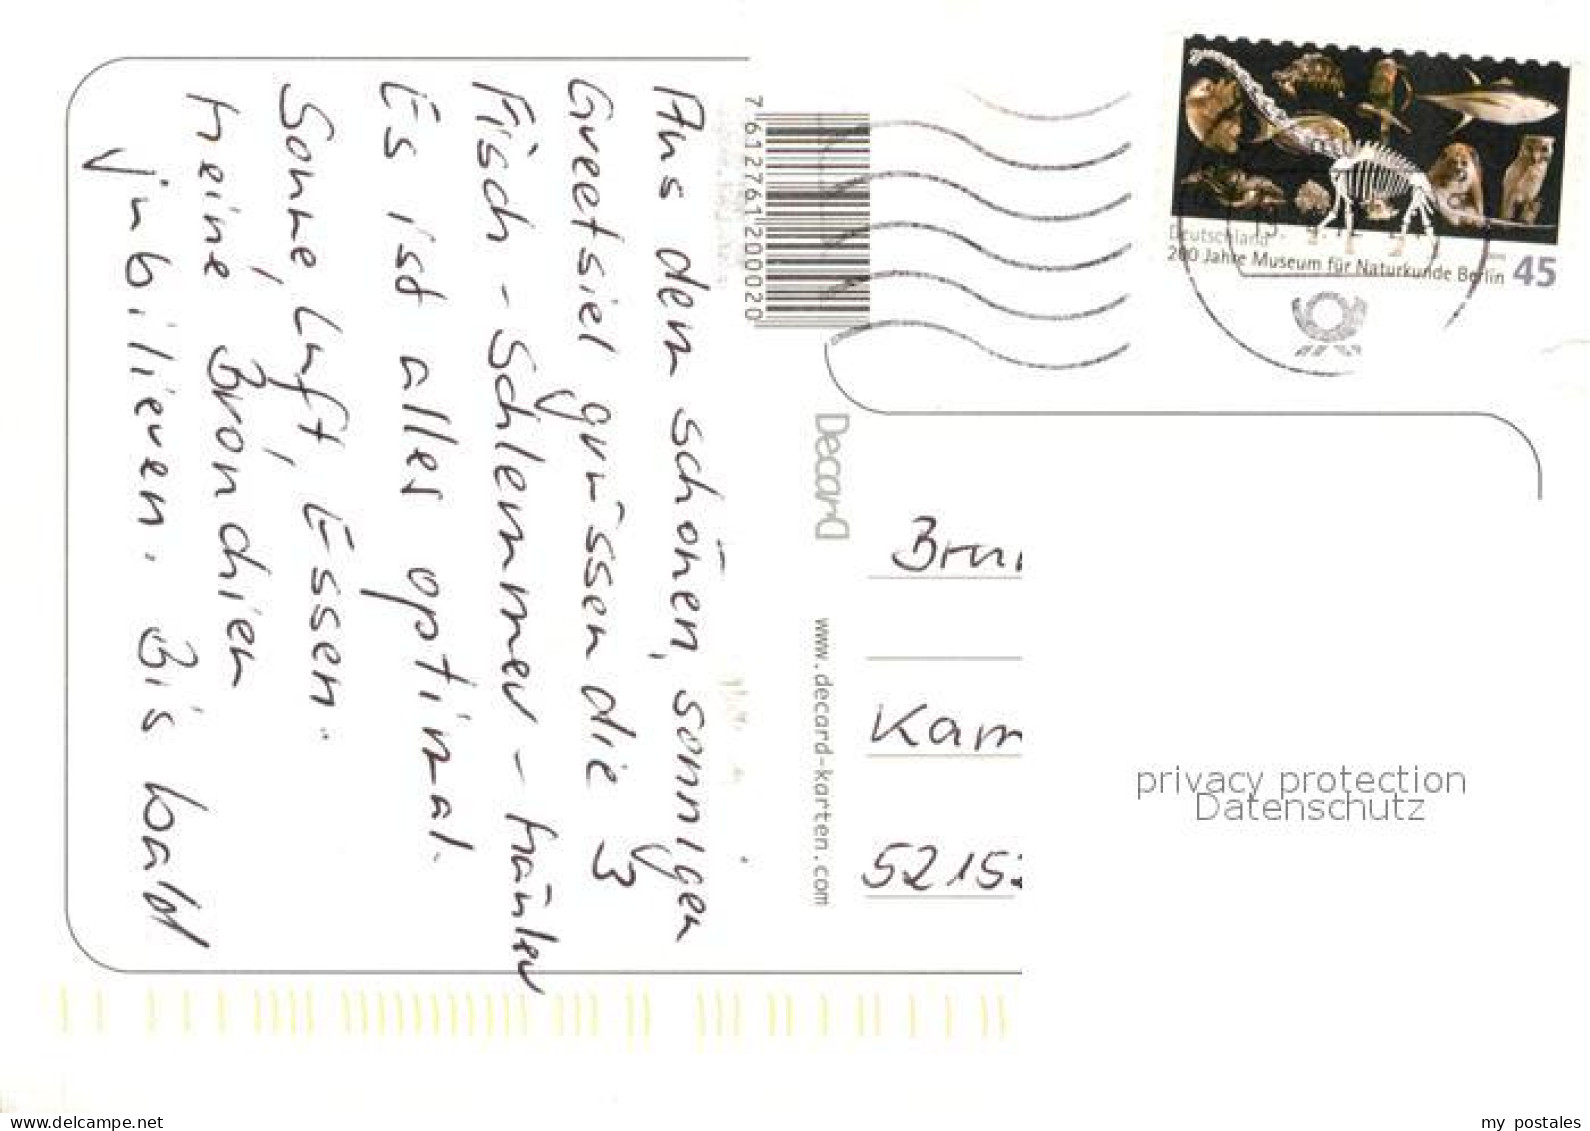 Aus dem schönen, sonnigen
Greetsiel grüssen die 3
Fisch-Schlemmer-Mäuler
Es ist alles optimal.
Sonne, Luft, Essen.
Meine Bronchien
jubilieren. Bis bald
7612761200020
Decard
www.decard-karten.com
Deutschland
200 Jahre Museum für Naturkunde Berlin 45
52152
privacy protection
Datenschutz
www.delcampe.net
my_postales